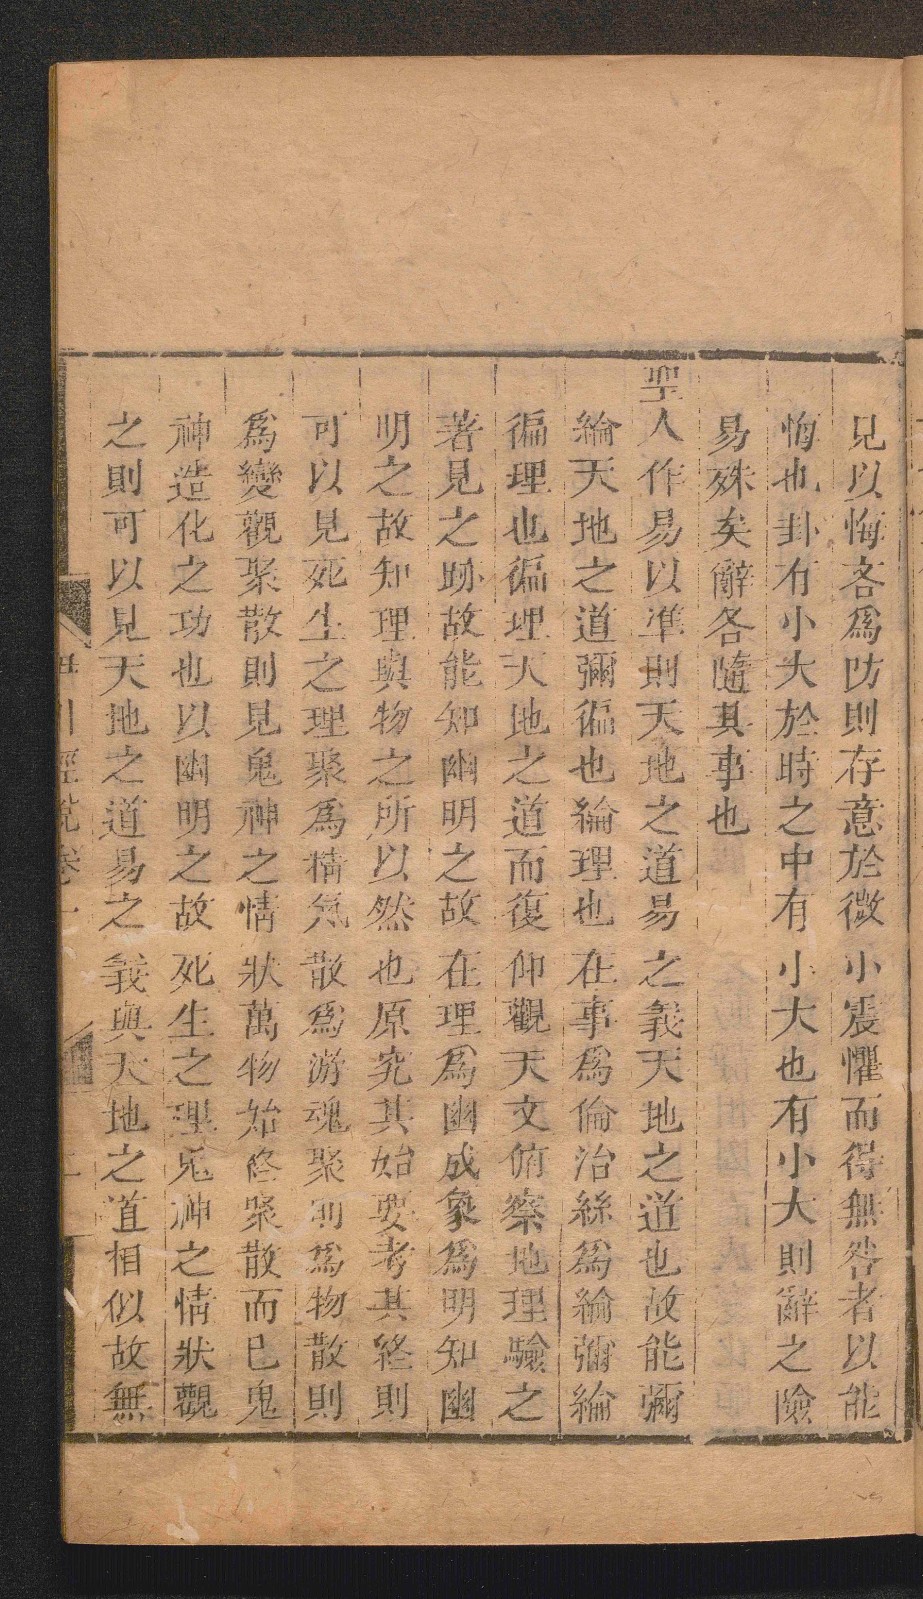 見以悔吝爲防則存意於微小震懼而得無咎者以能
悔也卦有小大於時之中有小大也有小大則辭之險
易殊矣辭各隨其事也
聖人作易以準則天地之道易之義天地之道也故能彌
綸天地之道彌徧也綸理也在事爲倫治絲爲綸彌綸
徧理也徧理天地之道而復仰觀天文俯察地理驗之
著見之跡故能知幽明之故在理爲幽成象爲明知幽
明之故知理與物之所以然也原究其始要考其終則
可以見死生之理聚爲精氣散爲游魂聚則爲物散則
爲變觀聚散則見鬼神之情狀萬物始終聚散而已鬼
神造化之功也以幽明之故死生之理鬼神之情狀觀
之則可以見天地之道易之義與天地之道相似故無
經說卷一
二